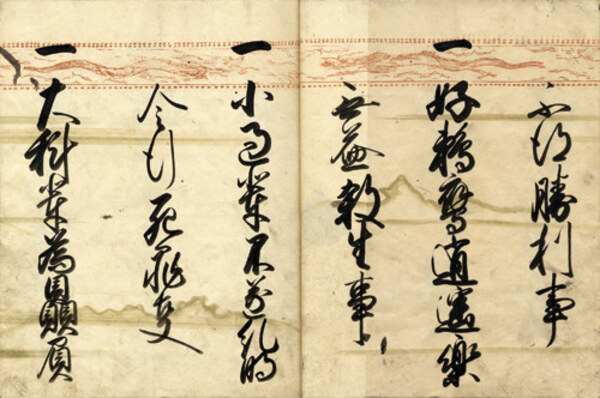 不得勝利事
一 好鵜鷹逍遥楽
無益殺生事
一 小過輩不遂糺明
令行死罪事
一 大科輩為贔屓